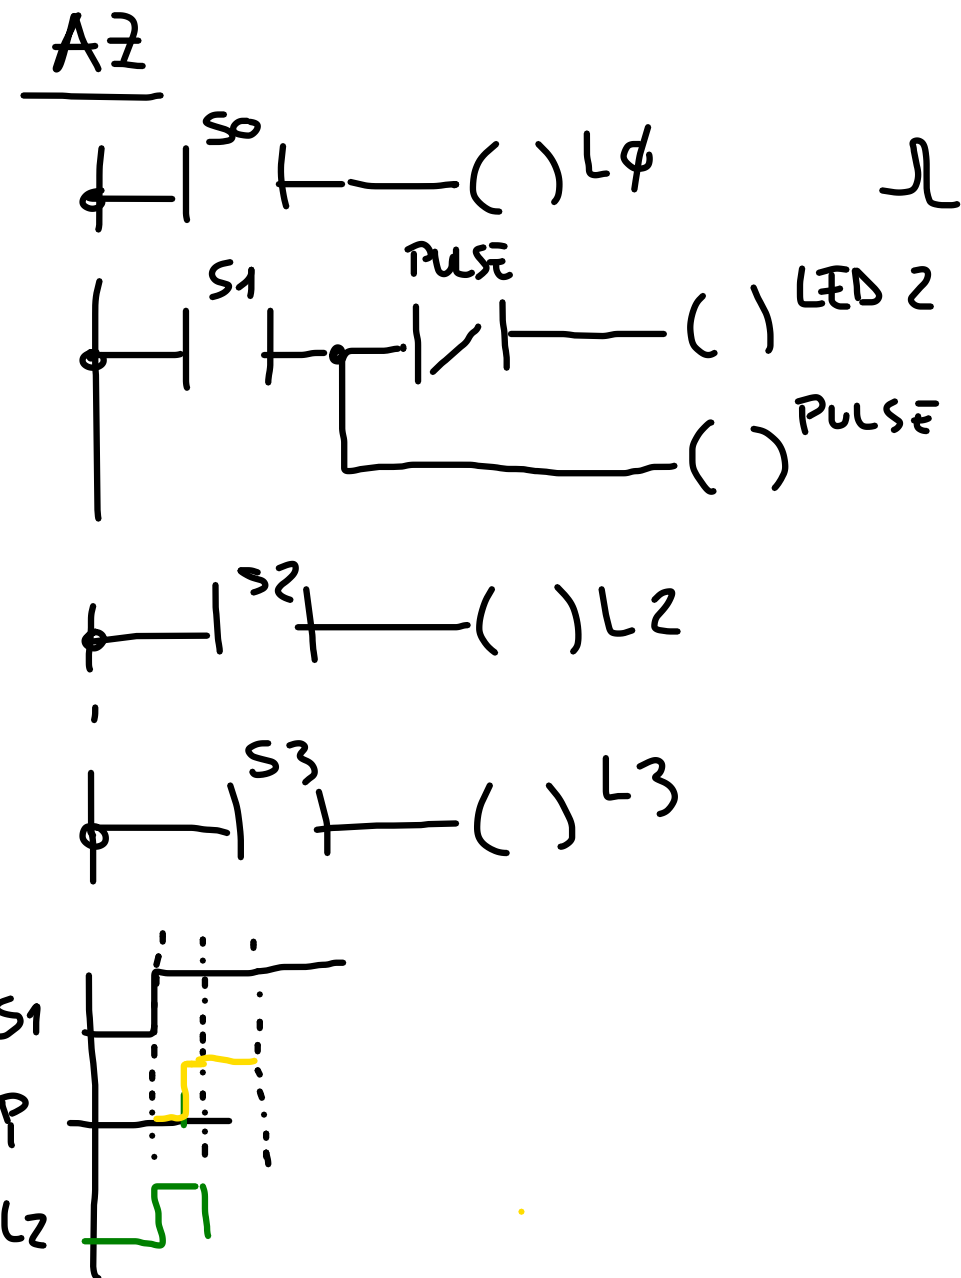 AZ
S0
LØ
PULSE
S1
LED 2
PULSE
S2
L2
S3
L3
S1
P
L2